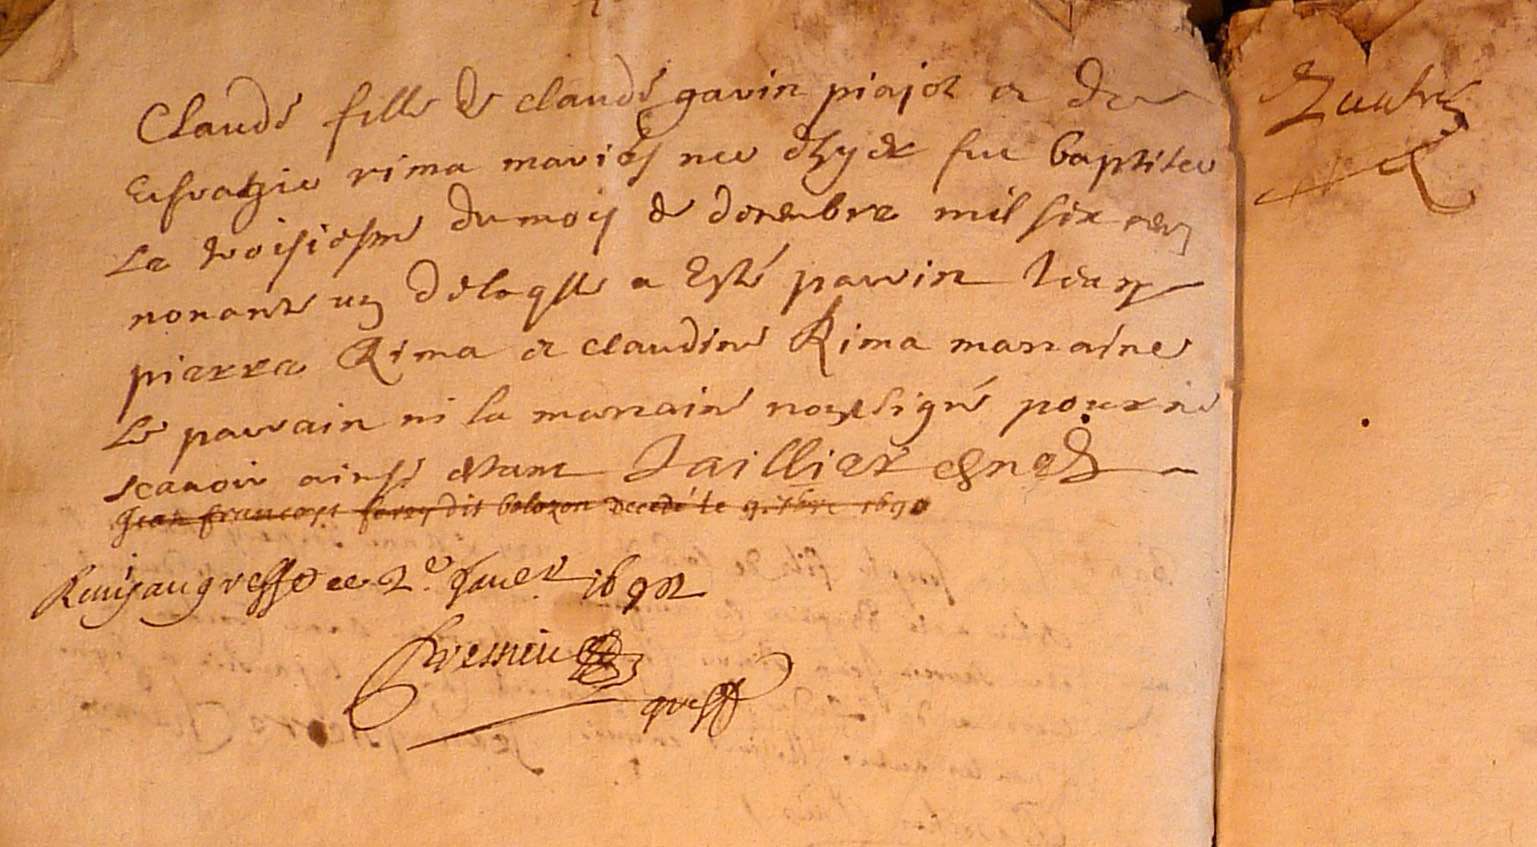 Claude fille de claude gavin piajot et de
rima mariés nee d'hyer fut baptisee
Le troisiesme du mois de decembre mil six cens
nonante un de laqlle a Esté parrin Jean
pierre Rima et claudine Rima marraine
Le parrain ni la marraine nont signé pour ne
scavoir ainsi estant Jaillier
Jean francoys dit bolozon decedé le 9. 7bre 1690
au greffe ce 2e Janer 1692
greff